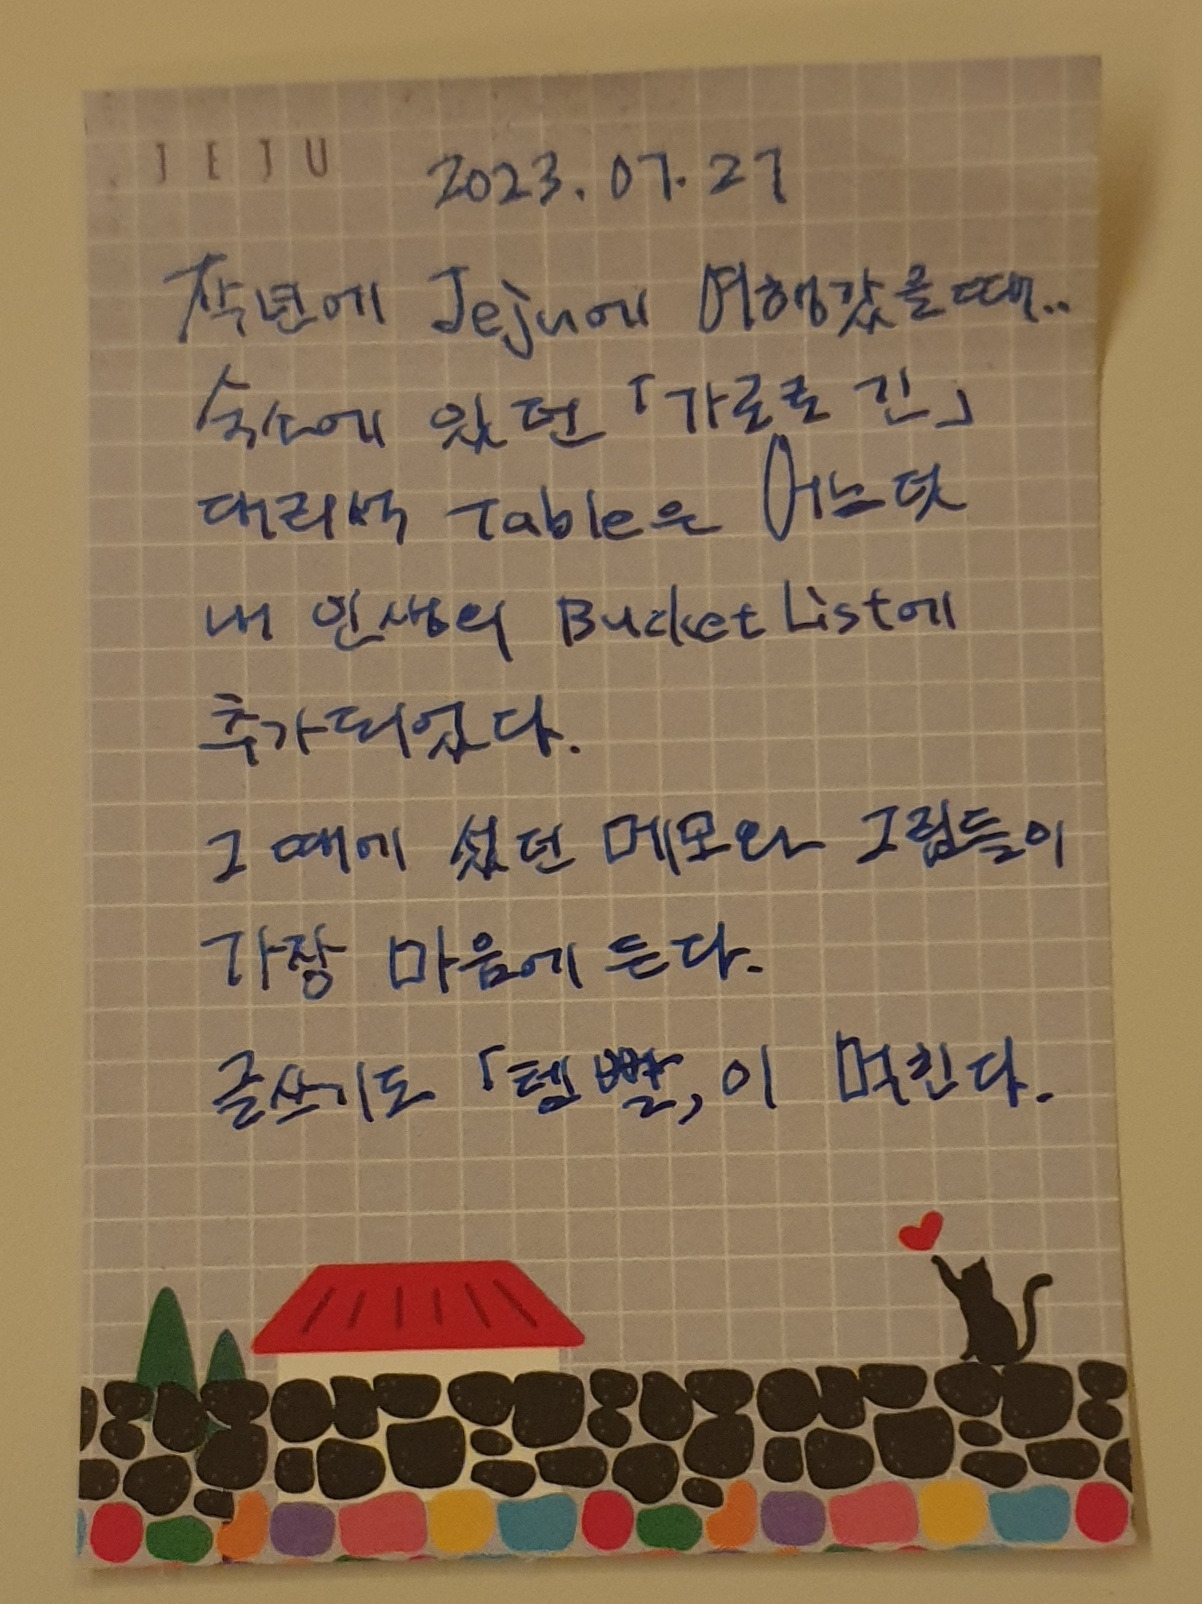 JEJU 2023.07.27
작년에 Jeju에 여행갔을때..
숙소에 있던 「가로로 긴」
대리석 Table은 어느덧
내 인생의 Bucket List에
추가되었다.
그 때에 썼던 메모와 그림들이
가장 마음에 든다.
글쓰기도 「템빨」이 먹힌다.